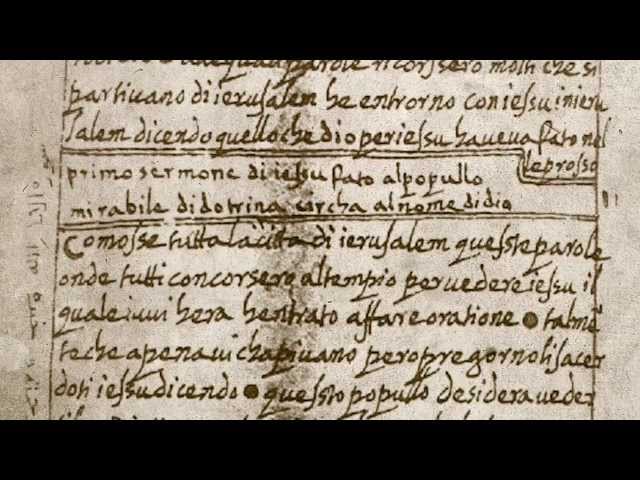 parole ricorssero molti che si
partivano di ierusalem he entrorno con iessu in ieru
salem dicendo quello che dio per iessu haveva fato nel
leprosso
primo sermone di iessu fato al populo
mirabile di dotrina circha al nome di dio
Comosse tutta la citta di ierusalem quesste parole
onde tutti concorsero al tempio per vedere iessu il
quale iuui hera hentrato affare oratione ● talmē
te che apena vi chapivano pero pregorno li sacer
doti iessu dicendo ● quessto populo desidera veder